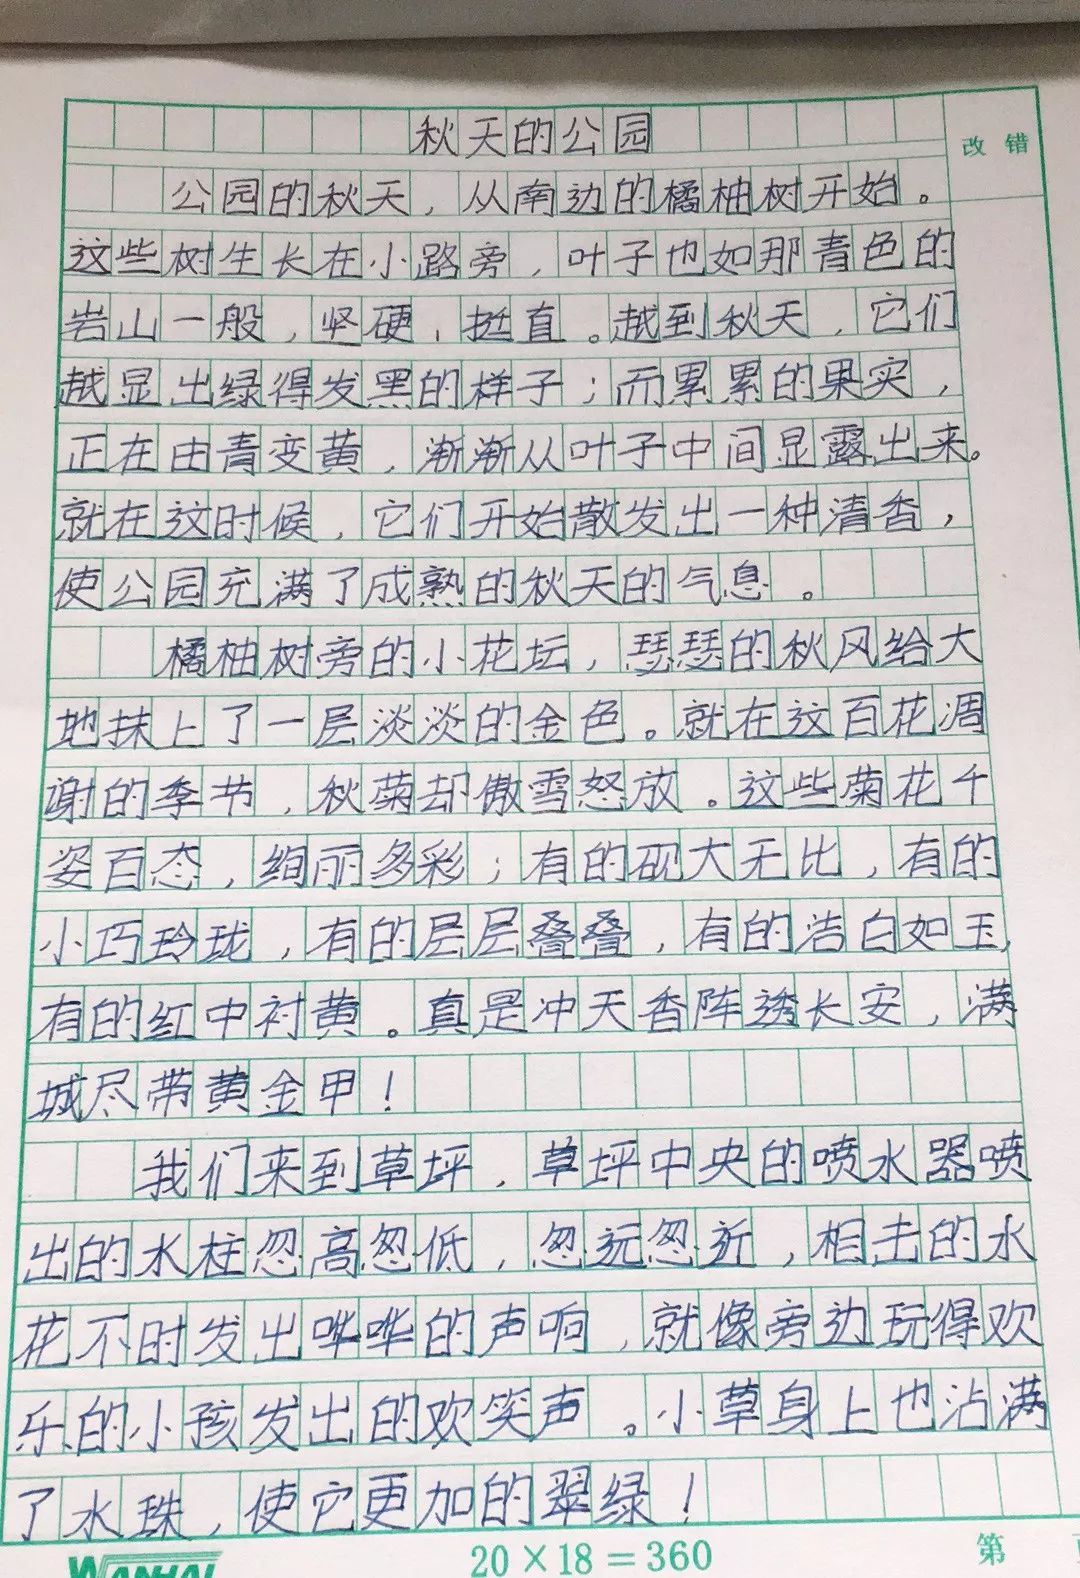 秋天的公园
改错
公园的秋天，从南边的橘柚树开始。
这些树生长在小路旁，叶子也如那青色的
岩山一般，坚硬，挺直。越到秋天，它们
越显出绿得发黑的样子；而累累的果实，
正在由青变黄，渐渐从叶子中间显露出来。
就在这时候，它们开始散发出一种清香，
使公园充满了成熟的秋天的气息。
橘柚树旁的小花坛，瑟瑟的秋风给大
地抹上了一层淡淡的金色。就在这百花凋
谢的季节，秋菊却傲雪怒放。这些菊花千
姿百态，绚丽多彩；有的硕大无比，有的
小巧玲珑，有的层层叠叠，有的洁白如玉，
有的红中衬黄。真是冲天香阵透长安，满
城尽带黄金甲！
我们来到草坪，草坪中央的喷水器喷
出的水柱忽高忽低，忽远忽近，相击的水
花不时发出哗哗的声响，就像旁边玩得欢
乐的小孩发出的欢笑声。小草身上也沾满
了水珠，使它更加的翠绿！
WANHAI
20×18=360
第